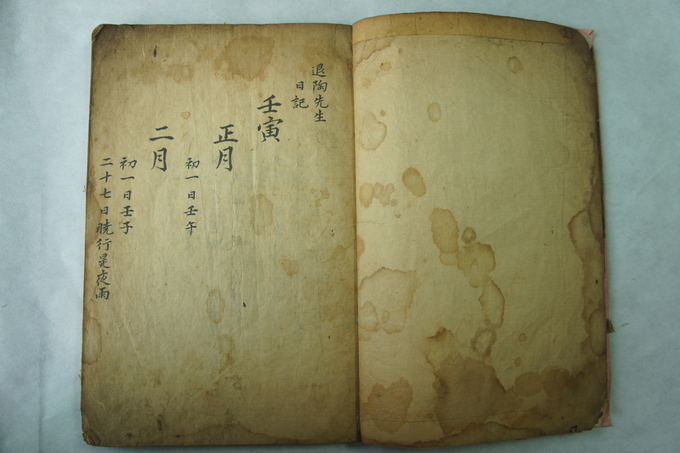 退陶先生
日記
壬寅
正月
初一日壬午
二月
初一日壬子
二十七日曉行是夜雨